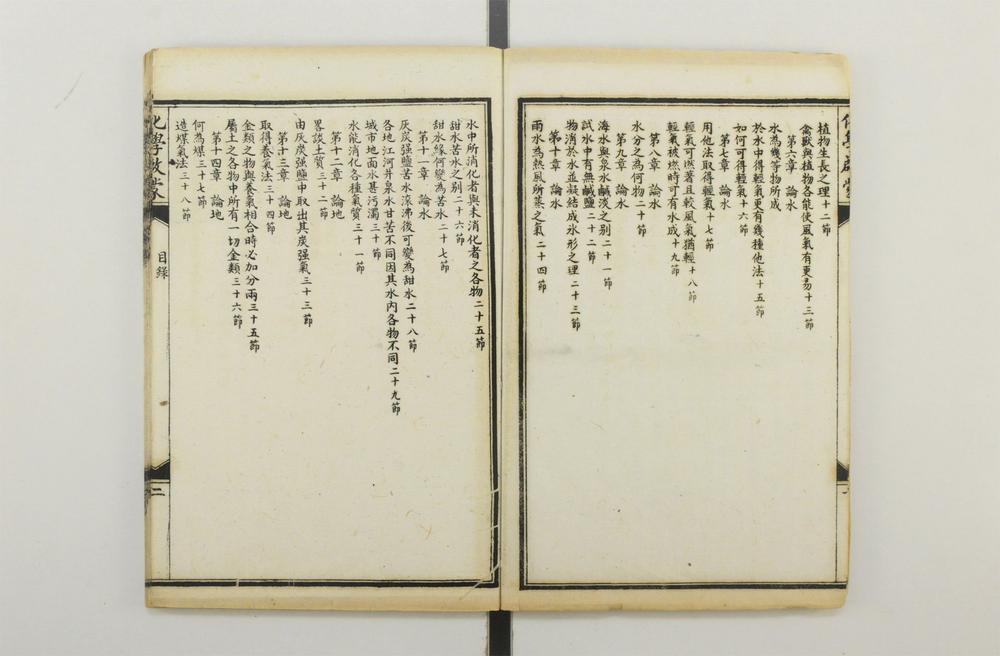 植物生長之理十二節
禽獸與植物各能使風氣有更易十三節
第六章 論水
水為幾等物所成
於水中得輕氣更有幾種他法十五節
如何可得輕氣十六節
第七章 論水
用他法取得輕氣十七節
輕氣可燃著且較風氣猶輕十八節
輕氣被燃時可有水成十九節
第八章 論水
水分之為何物二十節
第九章 論水
海水與泉水鹹淡之別二十一節
試水中有無鹹鹽二十二節
物消於水並凝結成氷形之理二十三節
第十章 論水
雨水為熱風所蒸之氣二十四節
水中所消化者與未消化者之各物二十五節
甜水苦水之别二十六節
甜水緣何變為苦水二十七節
第十一章 論水
灰炭强鹽苦水滾沸後可變為甜水二十八節
各地江河井泉水甘苦不同因其水內各物不同二十九節
城市地面水甚污濁三十節
水能消化各種氣質三十一節
第十二章 論地
畧談土質三十二節
由灰炭强鹽中取出其炭强氣三十三節
第十三章 論地
取得養氣法三十四節
金類之物與養氣相合時必加分兩三十五節
屬土之各物中所有一切金類三十六節
第十四章 論地
何為煤三十七節
造煤氣法三十八節
化學啟蒙
目錄
二